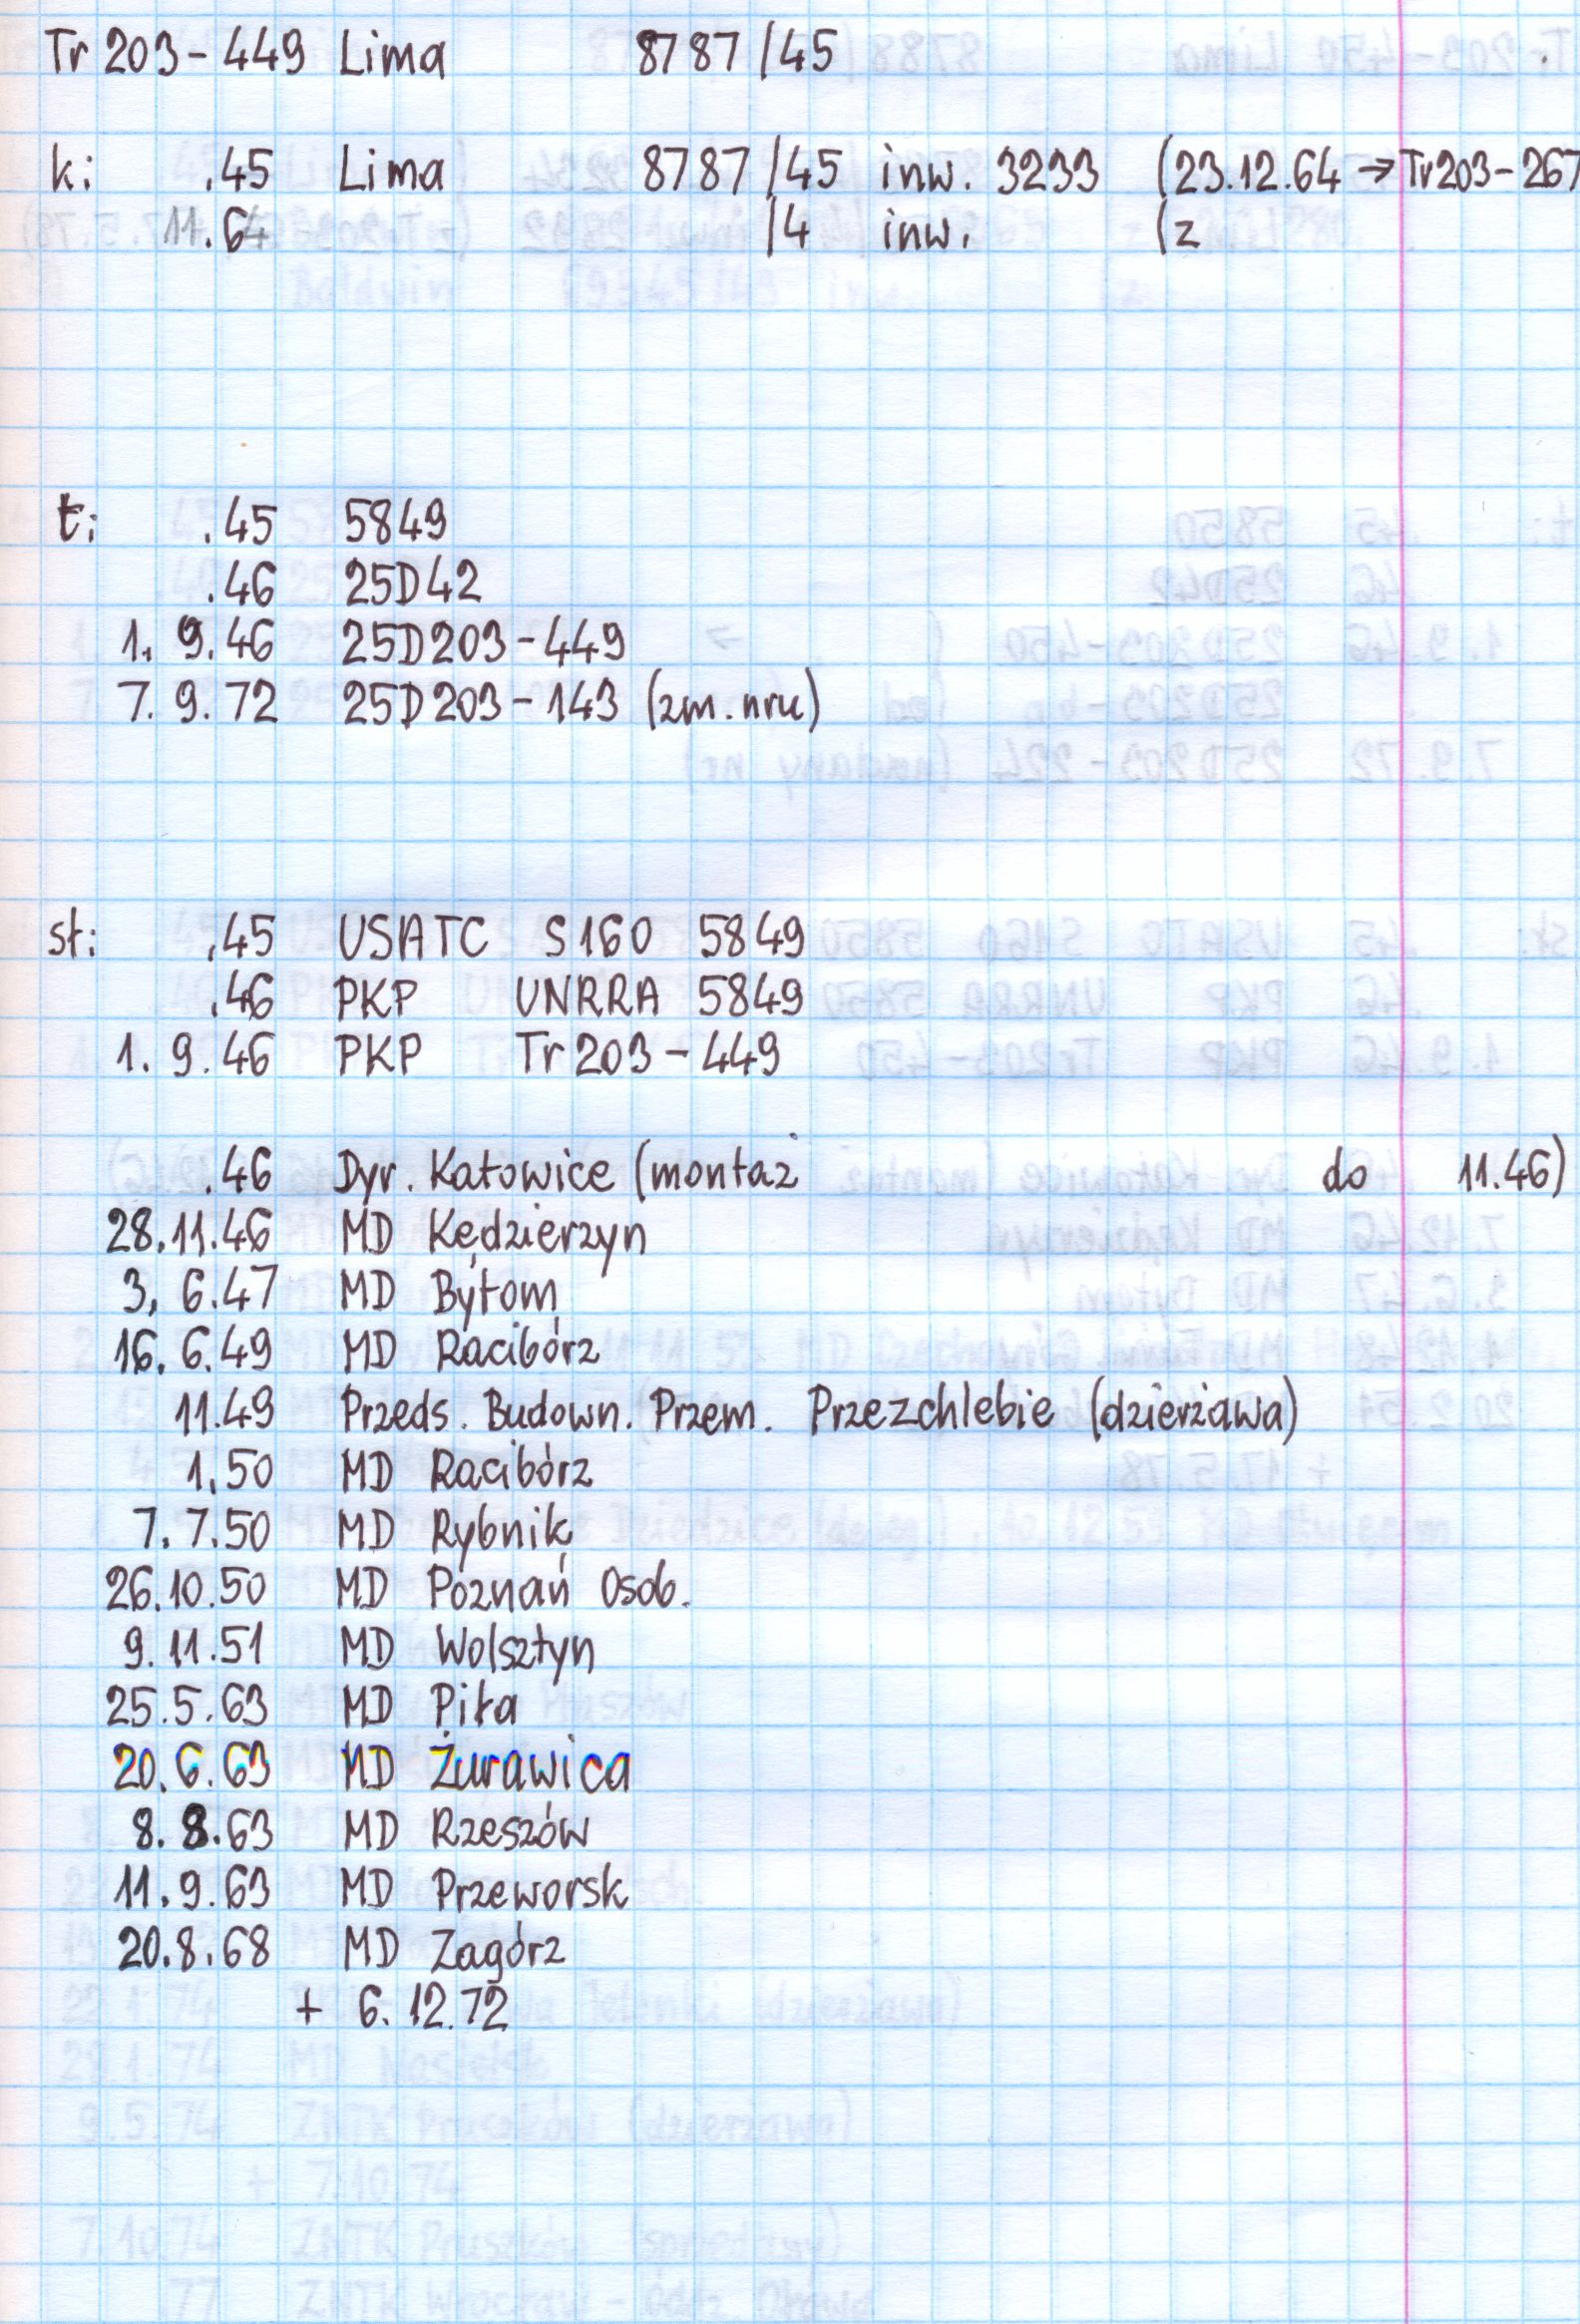 Tr 203-449 Lima 8787/45
k: .45 Lima 8787/45 inw. 3233 (23.12.64 → Tr203-267
11.64 /4 inw. (z
t: .45 5849
.46 25D42
1. 9.46 25D203-449
7. 9.72 25D203-143 (zm. nru)
st: .45 USATC S160 5849
.46 PKP UNRRA 5849
1. 9.46 PKP Tr203-449
.46 Dyr. Katowice (montaż do 11.46)
28.11.46 MD Kędzierzyn
3. 6.47 MD Bytom
16. 6.49 MD Racibórz
11.49 Przeds. Budown. Przem. Przezchlebie (dzierżawa)
1.50 MD Racibórz
7. 7.50 MD Rybnik
26.10.50 MD Poznań Osob.
9. 11.51 MD Wolsztyn
25.5.63 MD Piła
20.6.63 MD Żurawica
8. 8.63 MD Rzeszów
11.9.63 MD Przeworsk
20.8.68 MD Zagórz
+ 6.12.72